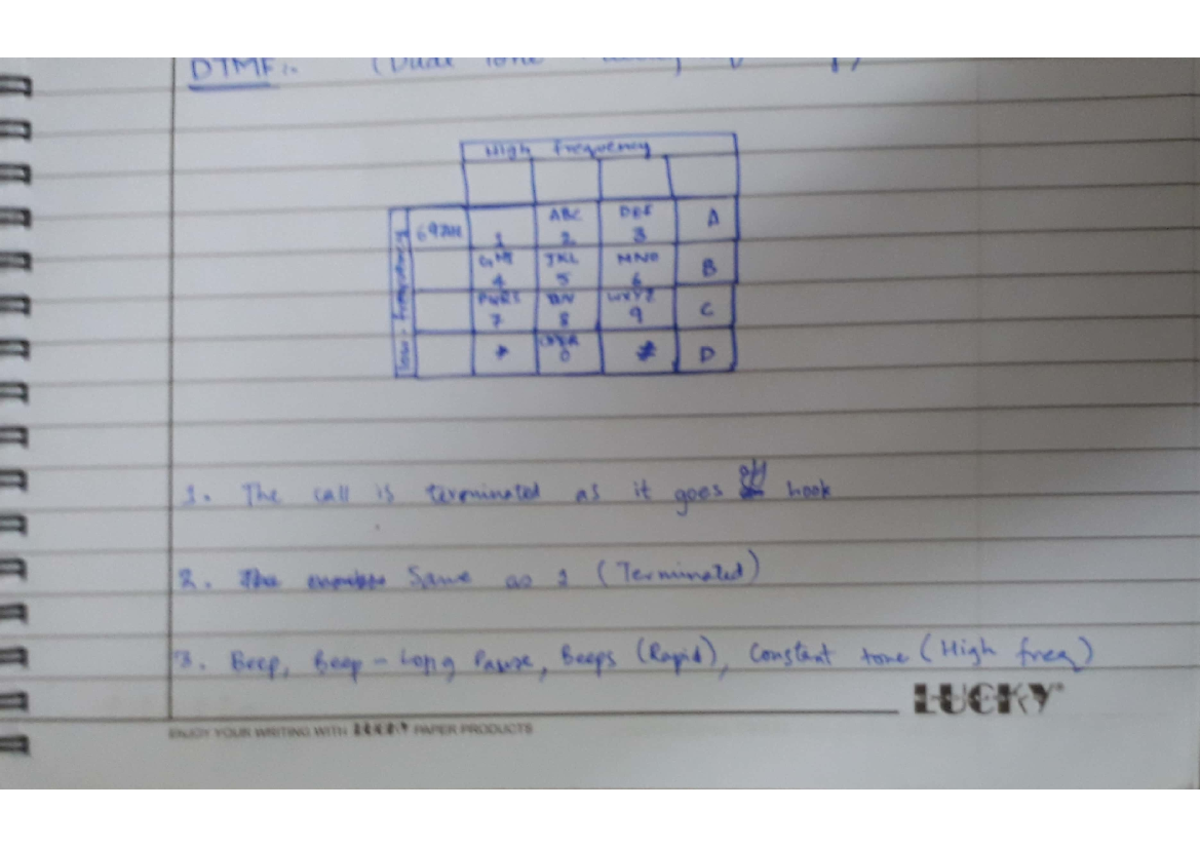 DTMF :- (Dual Tone
High frequency
low frequency
697Hz 1 ABC 2 DEF 3 A
GHI 4 JKL 5 MNO 6 B
PQRS 7 8 WXYZ 9 C
* 0 # D
1. The call is terminated as it goes off hook
2. The Same as 1 (Terminated)
3. Beep, Beep - Long Pause, Beeps (Rapid), Constant tone (High freq)
LUCKY
ENJOY YOUR WRITING WITH LUCKY PAPER PRODUCTS